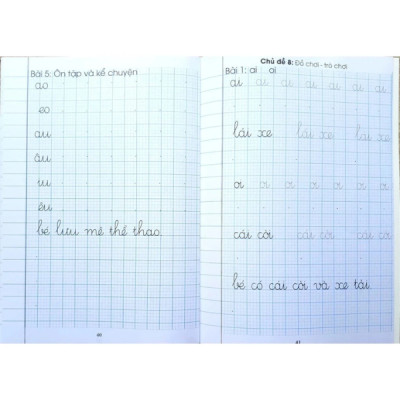 Bài 5: Ôn tập và kể chuyện
ao
eo
au
âu
iu
êu
bé lưu mê thể thao.
40
Chủ đề 8: Đồ chơi - trò chơi
Bài 1: ai oi
ai ai ai ai ai ai
lái xe lái xe lái xe
oi oi oi oi oi oi oi
cái còi cái còi cái còi
bé có cái còi và xe tải.
41